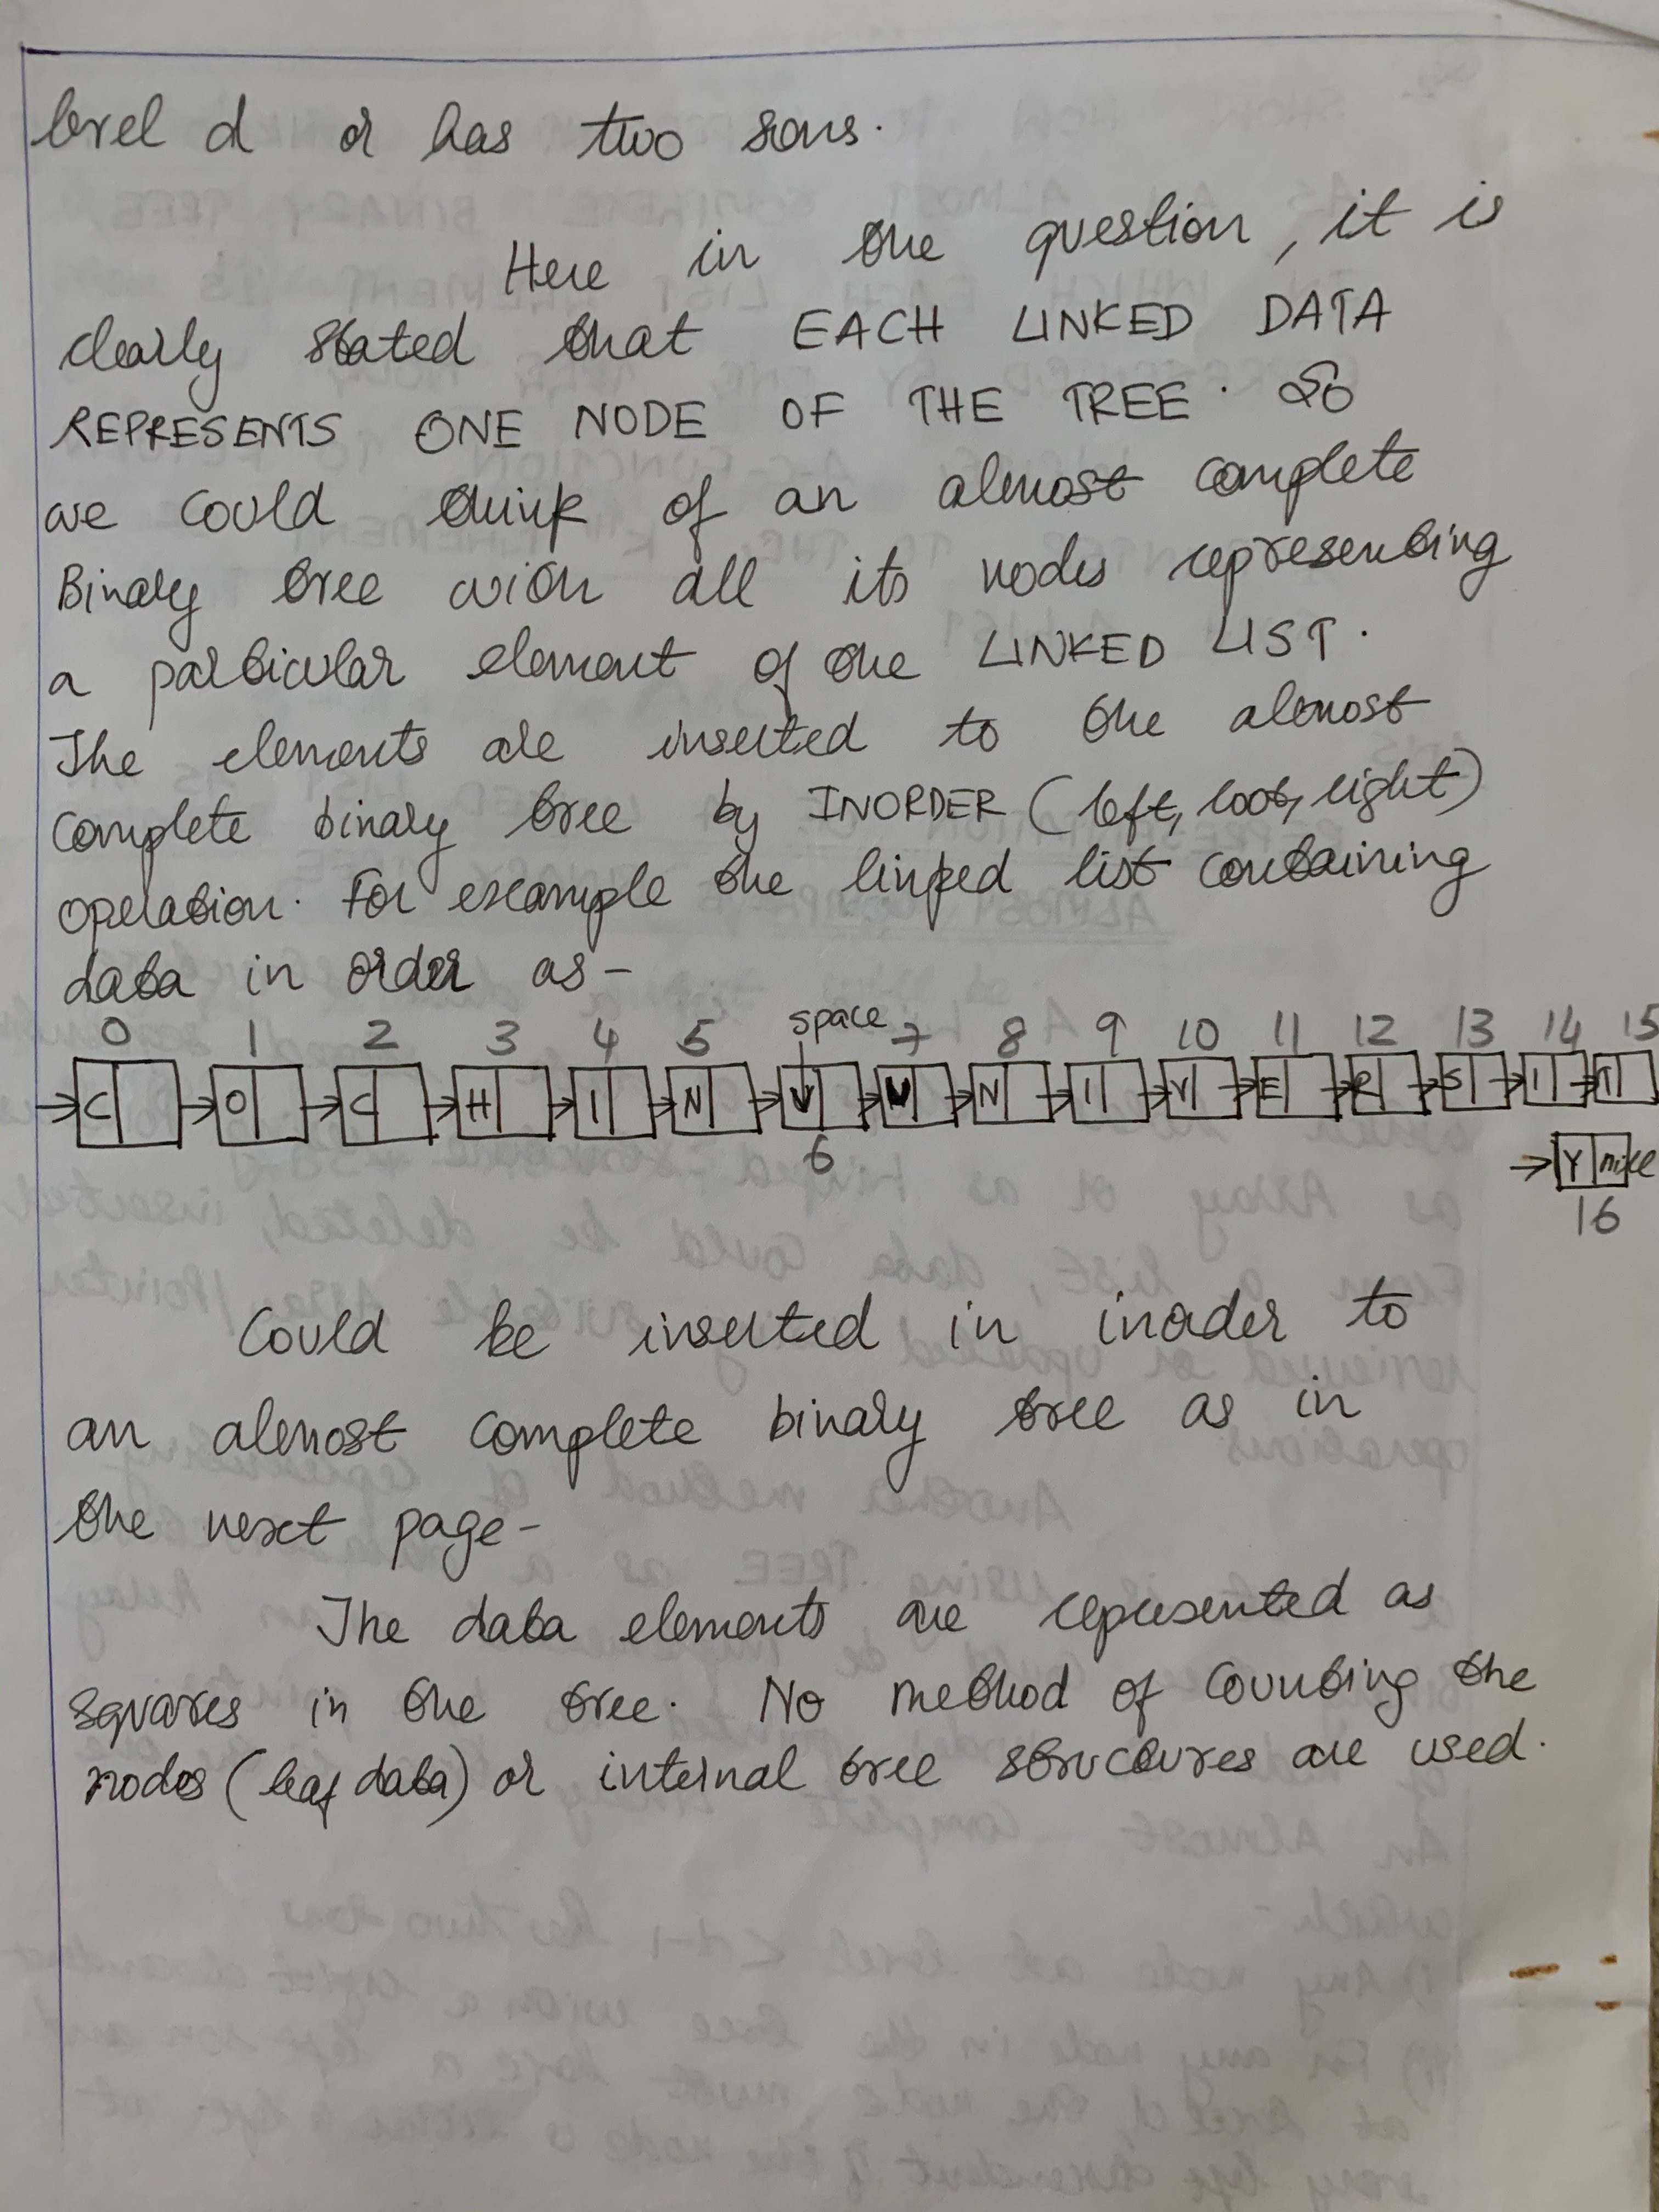 level d or has two sons.
Here in the question, it is
clearly stated that EACH LINKED DATA
REPRESENTS ONE NODE OF THE TREE. So
we could think of an almost complete
Binary tree with all its nodes representing
a particular element of the LINKED LIST.
The elements are inserted to the almost
complete binary tree by INORDER (left, root, right)
operation. For example the linked list containing
data in order as-
0 1 2 3 4 5 space 7 8 9 10 11 12 13 14 15
C O C H I N U N I V E R S I T
6
Y
16
Could be inserted in inorder to
an almost complete binary tree as in
the next page-
The data elements are represented as
squares in the tree. No method of counting the
nodes (leaf data) or internal tree structures are used.